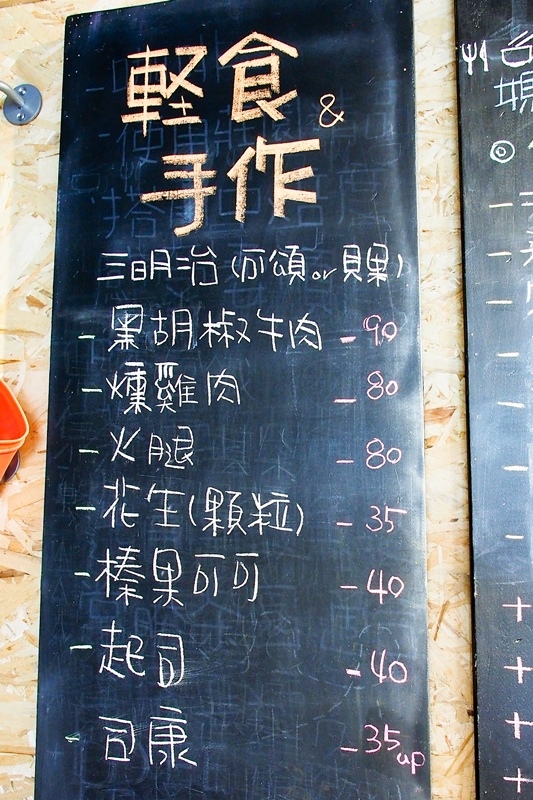 軽食 &
手作
三明治(可頌or貝果)
- 黑胡椒牛肉 - 90
- 燻雞肉 - 80
- 火腿 - 80
- 花生(顆粒) - 35
- 榛果可可 - 40
- 起司 - 40
- 司康 - 35up